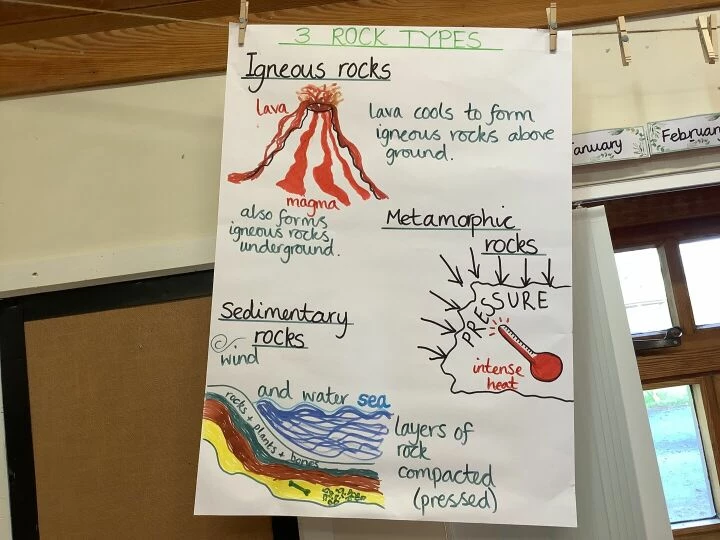 3 ROCK TYPES
Igneous rocks
lava
lava cools to form
igneous rocks above
ground.
magma
also forms
igneous rocks
underground.
Metamorphic
rocks
PRESSURE
intense
heat
Sedimentary
rocks
wind
and water sea
rocks + plants + bones
layers of
rock
compacted
(pressed)
anuary
Februar